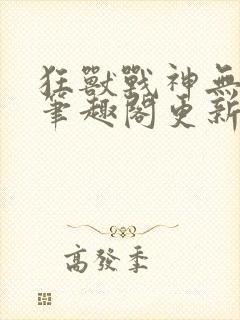 狂獸戰神無
筆趣閣更新
高發季